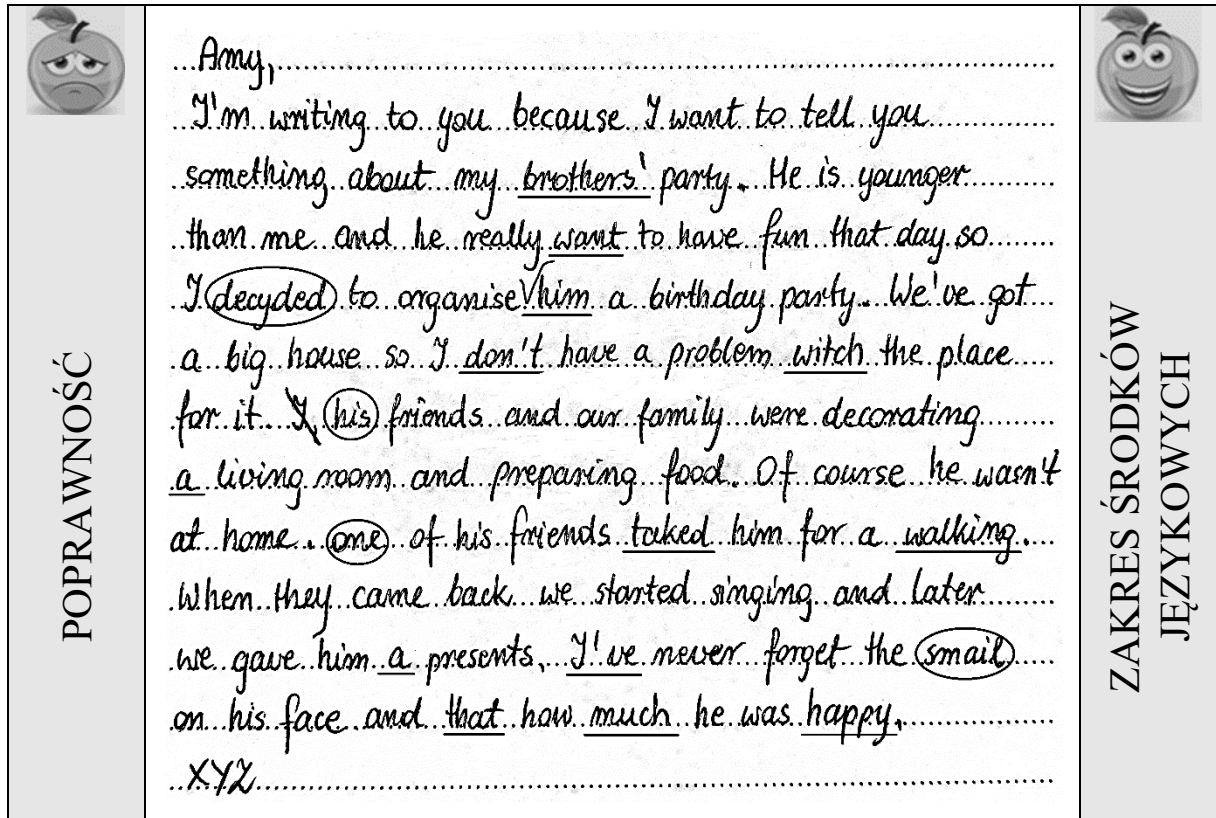 POPRAWNOŚĆ
Amy,
I'm writing to you because I want to tell you
something about my brothers' party. He is younger
than me and he really want to have fun that day so
I decyded to organise √ him a birthday party. We've got
a big house so I don't have a problem witch the place
for it. I, his friends and our family were decorating
a living room and preparing food. Of course he wasn't
at home. one of his friends taked him for a walking.
When they came back we started singing and later
we gave him a presents. I've never forget the smail
on his face and that how much he was happy.
XYZ
ZAKRES ŚRODKÓW
JĘZYKOWYCH